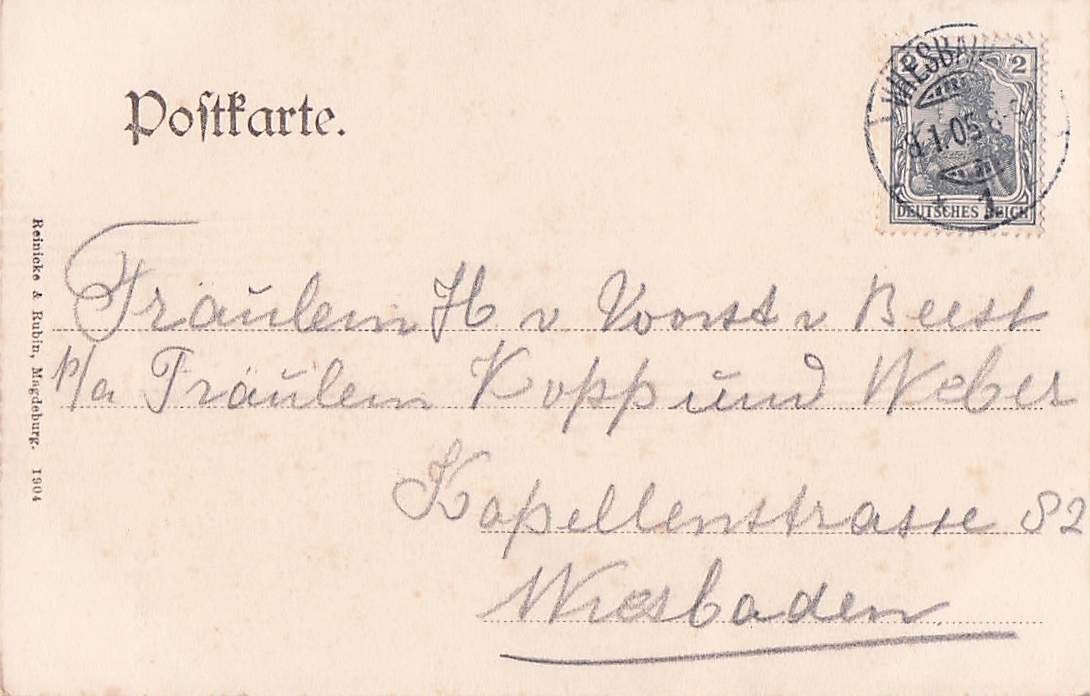 Postkarte.
2
WIESBA
8.1.05 8-
1
DEUTSCHES REICH
Reinicke & Rubin, Magdeburg. 1904
Fräulein H. v Voorst v Beest
p/a Fräulein Kopp und Weber
Kapellenstrasse 82
Wiesbaden.